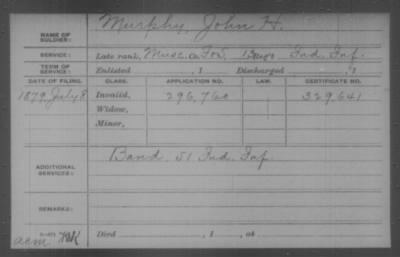 Murphy, John H.
NAME OF SOLDIER:
SERVICE: Late rank, Musc. Co. For. Brigs Ind. Inf.
TERM OF SERVICE: Enlisted , 1 Discharged , 1
DATE OF FILING. CLASS. APPLICATION NO. LAW. CERTIFICATE NO.
1879, July 8 Invalid, 296,760 329,641
Widow,
Minor,
ADDITIONAL SERVICES: Band, 51 Ind. Inf.
REMARKS:
acm
Died , 1 , at